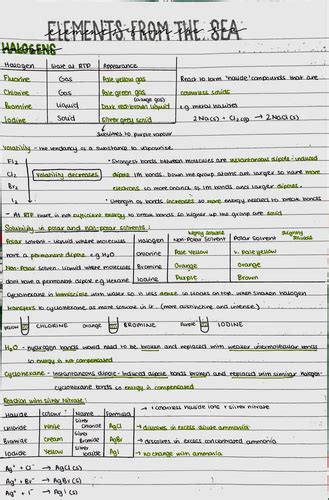 ELEMENTS FROM THE SEA
HALOGENS
Halogen State at RTP Appearance
Fluorine Gas Pale yellow gas
Chlorine Gas Pale green gas
(orange gas)
Bromine Liquid Dark red-brown liquid
Iodine Solid Silver grey solid
sublimes to purple vapour
React to form 'halide' compounds that are
colourless solids
e.g. metal halides
2Na(s) + Cl2(g) → 2NaCl(s)
Volatility - the tendency of a substance to vaporise.
F12
Cl2
Br2
I2
Volatility decreases
• Strongest bonds between molecules are instantaneous dipole-induced
dipole IM bonds. Down the group atoms are larger so have more
electrons so more chance of IM bonds and larger dipoles.
• Strength of bonds increases so more energy needed to break bonds
- At RTP there is not sufficient energy to break bonds so higher up the group are solid
Solubility in polar and non-polar solvents:
Polar solvent - liquid where molecules
have a permanent dipole e.g. H2O
Non-Polar solvent - liquid where molecules
dont have a permanent dipole e.g. hexane
Halogen Non-Polar Solvent Polar Solvent
Chlorine Pale Yellow v. pale yellow
Bromine Orange Orange
Iodine Purple Brown
Cyclohexane is immiscible with water so is less dense so floats on top. When shaken halogen
transfers to cyclohexane as more soluble in it. (more distinctive and intense)
yellow CHLORINE orange BROMINE Purple IODINE
H2O - hydrogen bonds would need to be broken and replaced with weaker intermolecular bonds
so energy is not compensated
Cyclohexane - instantaneous dipole - induced dipole bonds broken and replaced with similar halogen-
cyclohexane bonds so energy is compensated
Reaction with Silver Nitrate:
• colourless halide ions + silver nitrate
Halide Colour Name Formula
Chloride White Silver Chloride AgCl → dissolves in excess dilute ammonia
Bromide Cream Silver Bromide AgBr → dissolves in excess concentrated ammonia
Iodide Yellow Silver Iodide AgI → no change with ammonia
Ag+ + Cl- → AgCl(s)
Ag+ + Br- → AgBr(s)
Ag+ + I- → AgI(s)